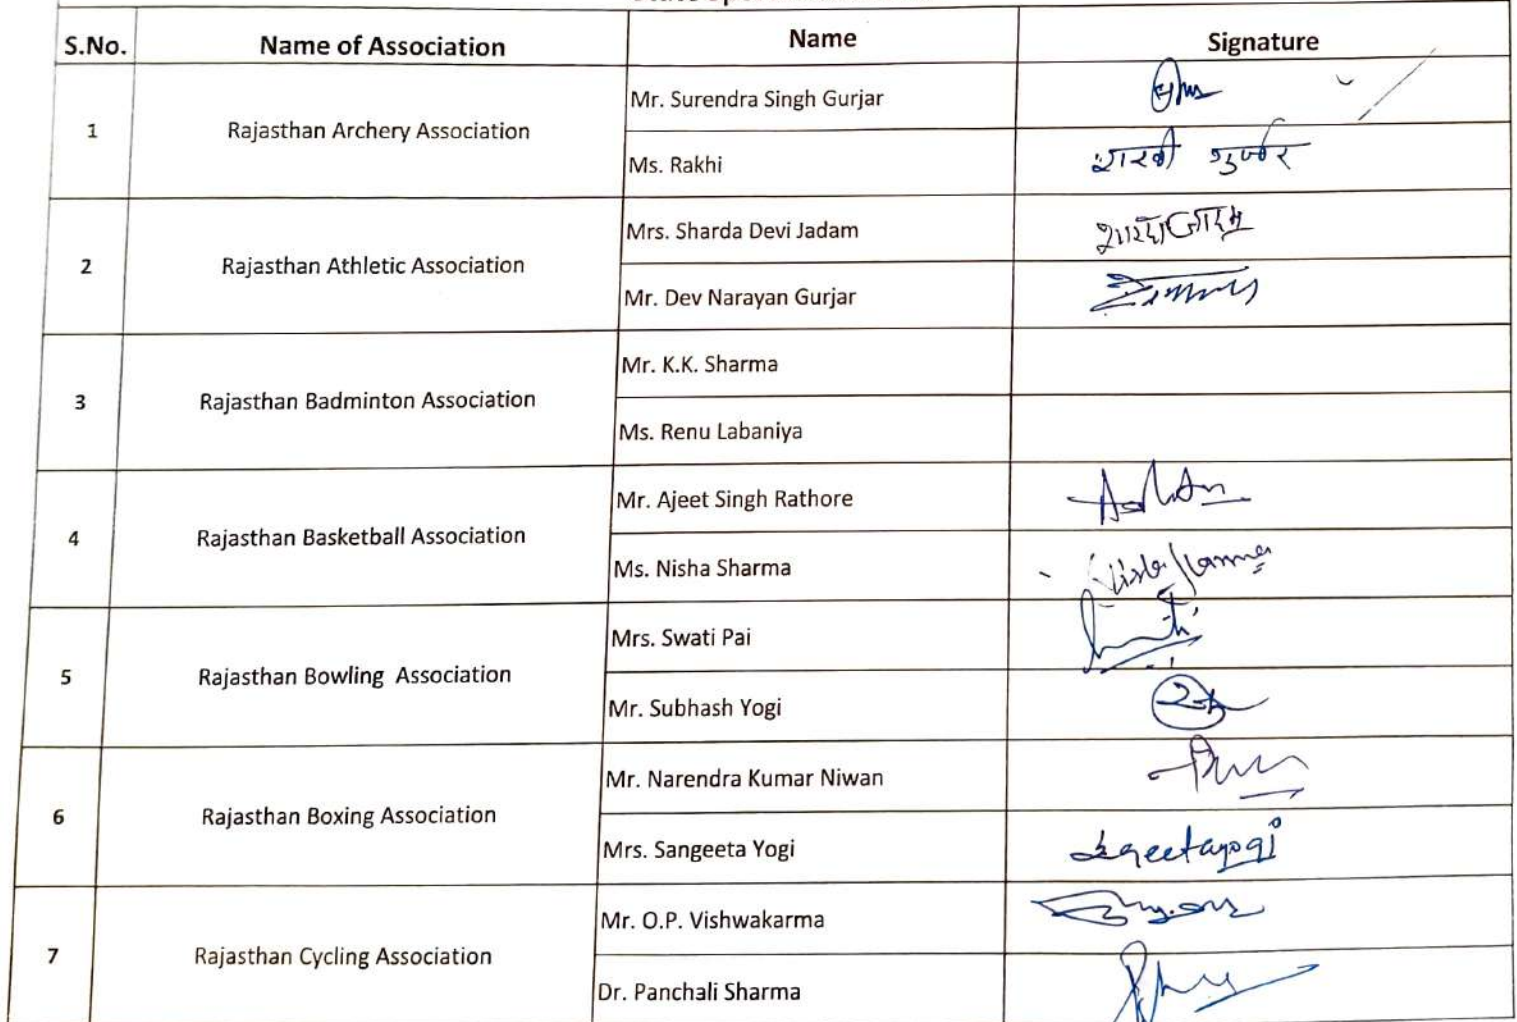 S.No. Name of Association Name Signature
1 Rajasthan Archery Association Mr. Surendra Singh Gurjar
Ms. Rakhi राखी गुर्जर
2 Rajasthan Athletic Association Mrs. Sharda Devi Jadam शारदा जादम
Mr. Dev Narayan Gurjar
3 Rajasthan Badminton Association Mr. K.K. Sharma
Ms. Renu Labaniya
4 Rajasthan Basketball Association Mr. Ajeet Singh Rathore
Ms. Nisha Sharma Nisha Sharma
5 Rajasthan Bowling Association Mrs. Swati Pai
Mr. Subhash Yogi
6 Rajasthan Boxing Association Mr. Narendra Kumar Niwan
Mrs. Sangeeta Yogi
7 Rajasthan Cycling Association Mr. O.P. Vishwakarma
Dr. Panchali Sharma